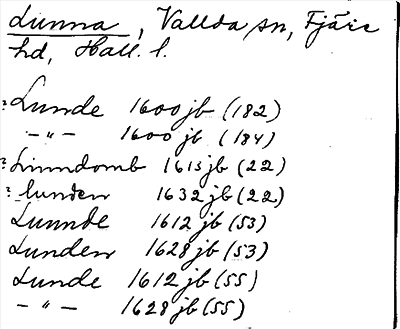 Lunna, Vallda sn, Fjäre
hd, Hall. l.
?Lunde 1600 jb (182)
–"– 1600 jb (184)
?Linndomb 1615 jb (22)
?lunden 1632 jb (22)
Lunnde 1612 jb (53)
Lunden 1628 jb (53)
Lunde 1612 jb (55)
–"– 1628 jb (55)